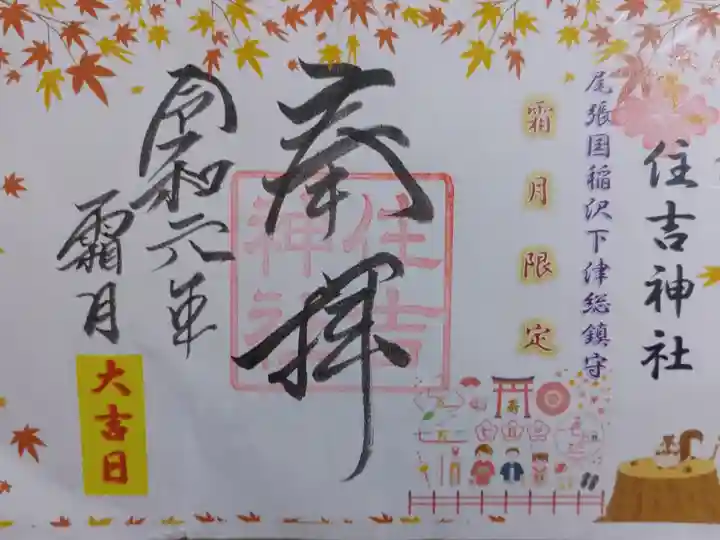 住吉神社
尾張国稲沢下津総鎮守
霜月限定
奉拝
住吉
神社
令和元年
霜月
大吉日
寿
七五三